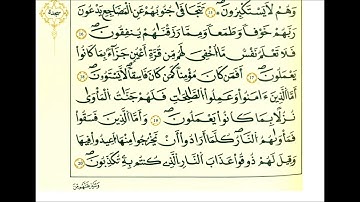 سجدة
وَهُمْ لَا يَسْتَكْبِرُونَ ۝ تَتَجَافَىٰ جُنُوبُهُمْ عَنِ ٱلْمَضَاجِعِ يَدْعُونَ
رَبَّهُمْ خَوْفًا وَطَمَعًا وَمِمَّا رَزَقْنَٰهُمْ يُنفِقُونَ ۝
فَلَا تَعْلَمُ نَفْسٌ مَّآ أُخْفِىَ لَهُم مِّن قُرَّةِ أَعْيُنٍ جَزَآءًۢ بِمَا كَانُوا۟
يَعْمَلُونَ ۝ أَفَمَن كَانَ مُؤْمِنًا كَمَن كَانَ فَاسِقًا لَّا يَسْتَوُۥنَ ۝
أَمَّا ٱلَّذِينَ ءَامَنُوا۟ وَعَمِلُوا۟ ٱلصَّٰلِحَٰتِ فَلَهُمْ جَنَّٰتُ ٱلْمَأْوَىٰ
نُزُلًۢا بِمَا كَانُوا۟ يَعْمَلُونَ ۝ وَأَمَّا ٱلَّذِينَ فَسَقُوا۟
فَمَأْوَىٰهُمُ ٱلنَّارُ كُلَّمَآ أَرَادُوٓا۟ أَن يَخْرُجُوا۟ مِنْهَآ أُعِيدُوا۟ فِيهَا
وَقِيلَ لَهُمْ ذُوقُوا۟ عَذَابَ ٱلنَّارِ ٱلَّذِى كُنتُم بِهِۦ تُكَذِّبُونَ ۝
وَلَنُذِيقَنَّهُم مِّنَ